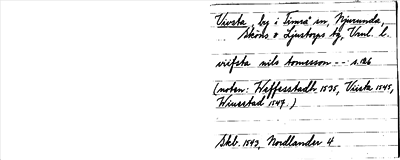 Vivsta, by i Timrå sn, Njurunda,
Sköns o Ljustorps tg, Vnl l.
vifsta nils tomesson -- s. 126
(noten: Weffsestadh 1535, Viista 1545,
Wiuestad 1547.)
Skb. 1543, Nordlander 4